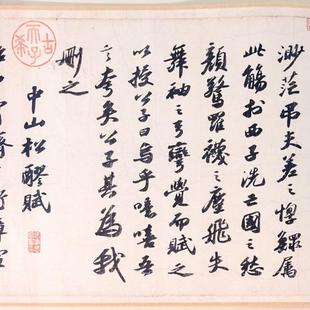 渺茫弔夫差之惸鰥屬
此觴於西子洗亡國之愁
顏驚羅襪之塵飛失
舞袖之弓彎覺而賦之
以授公子曰烏乎噫嘻吾
言夸矣公子其為我
刪之
中山松醪賦
古希天子